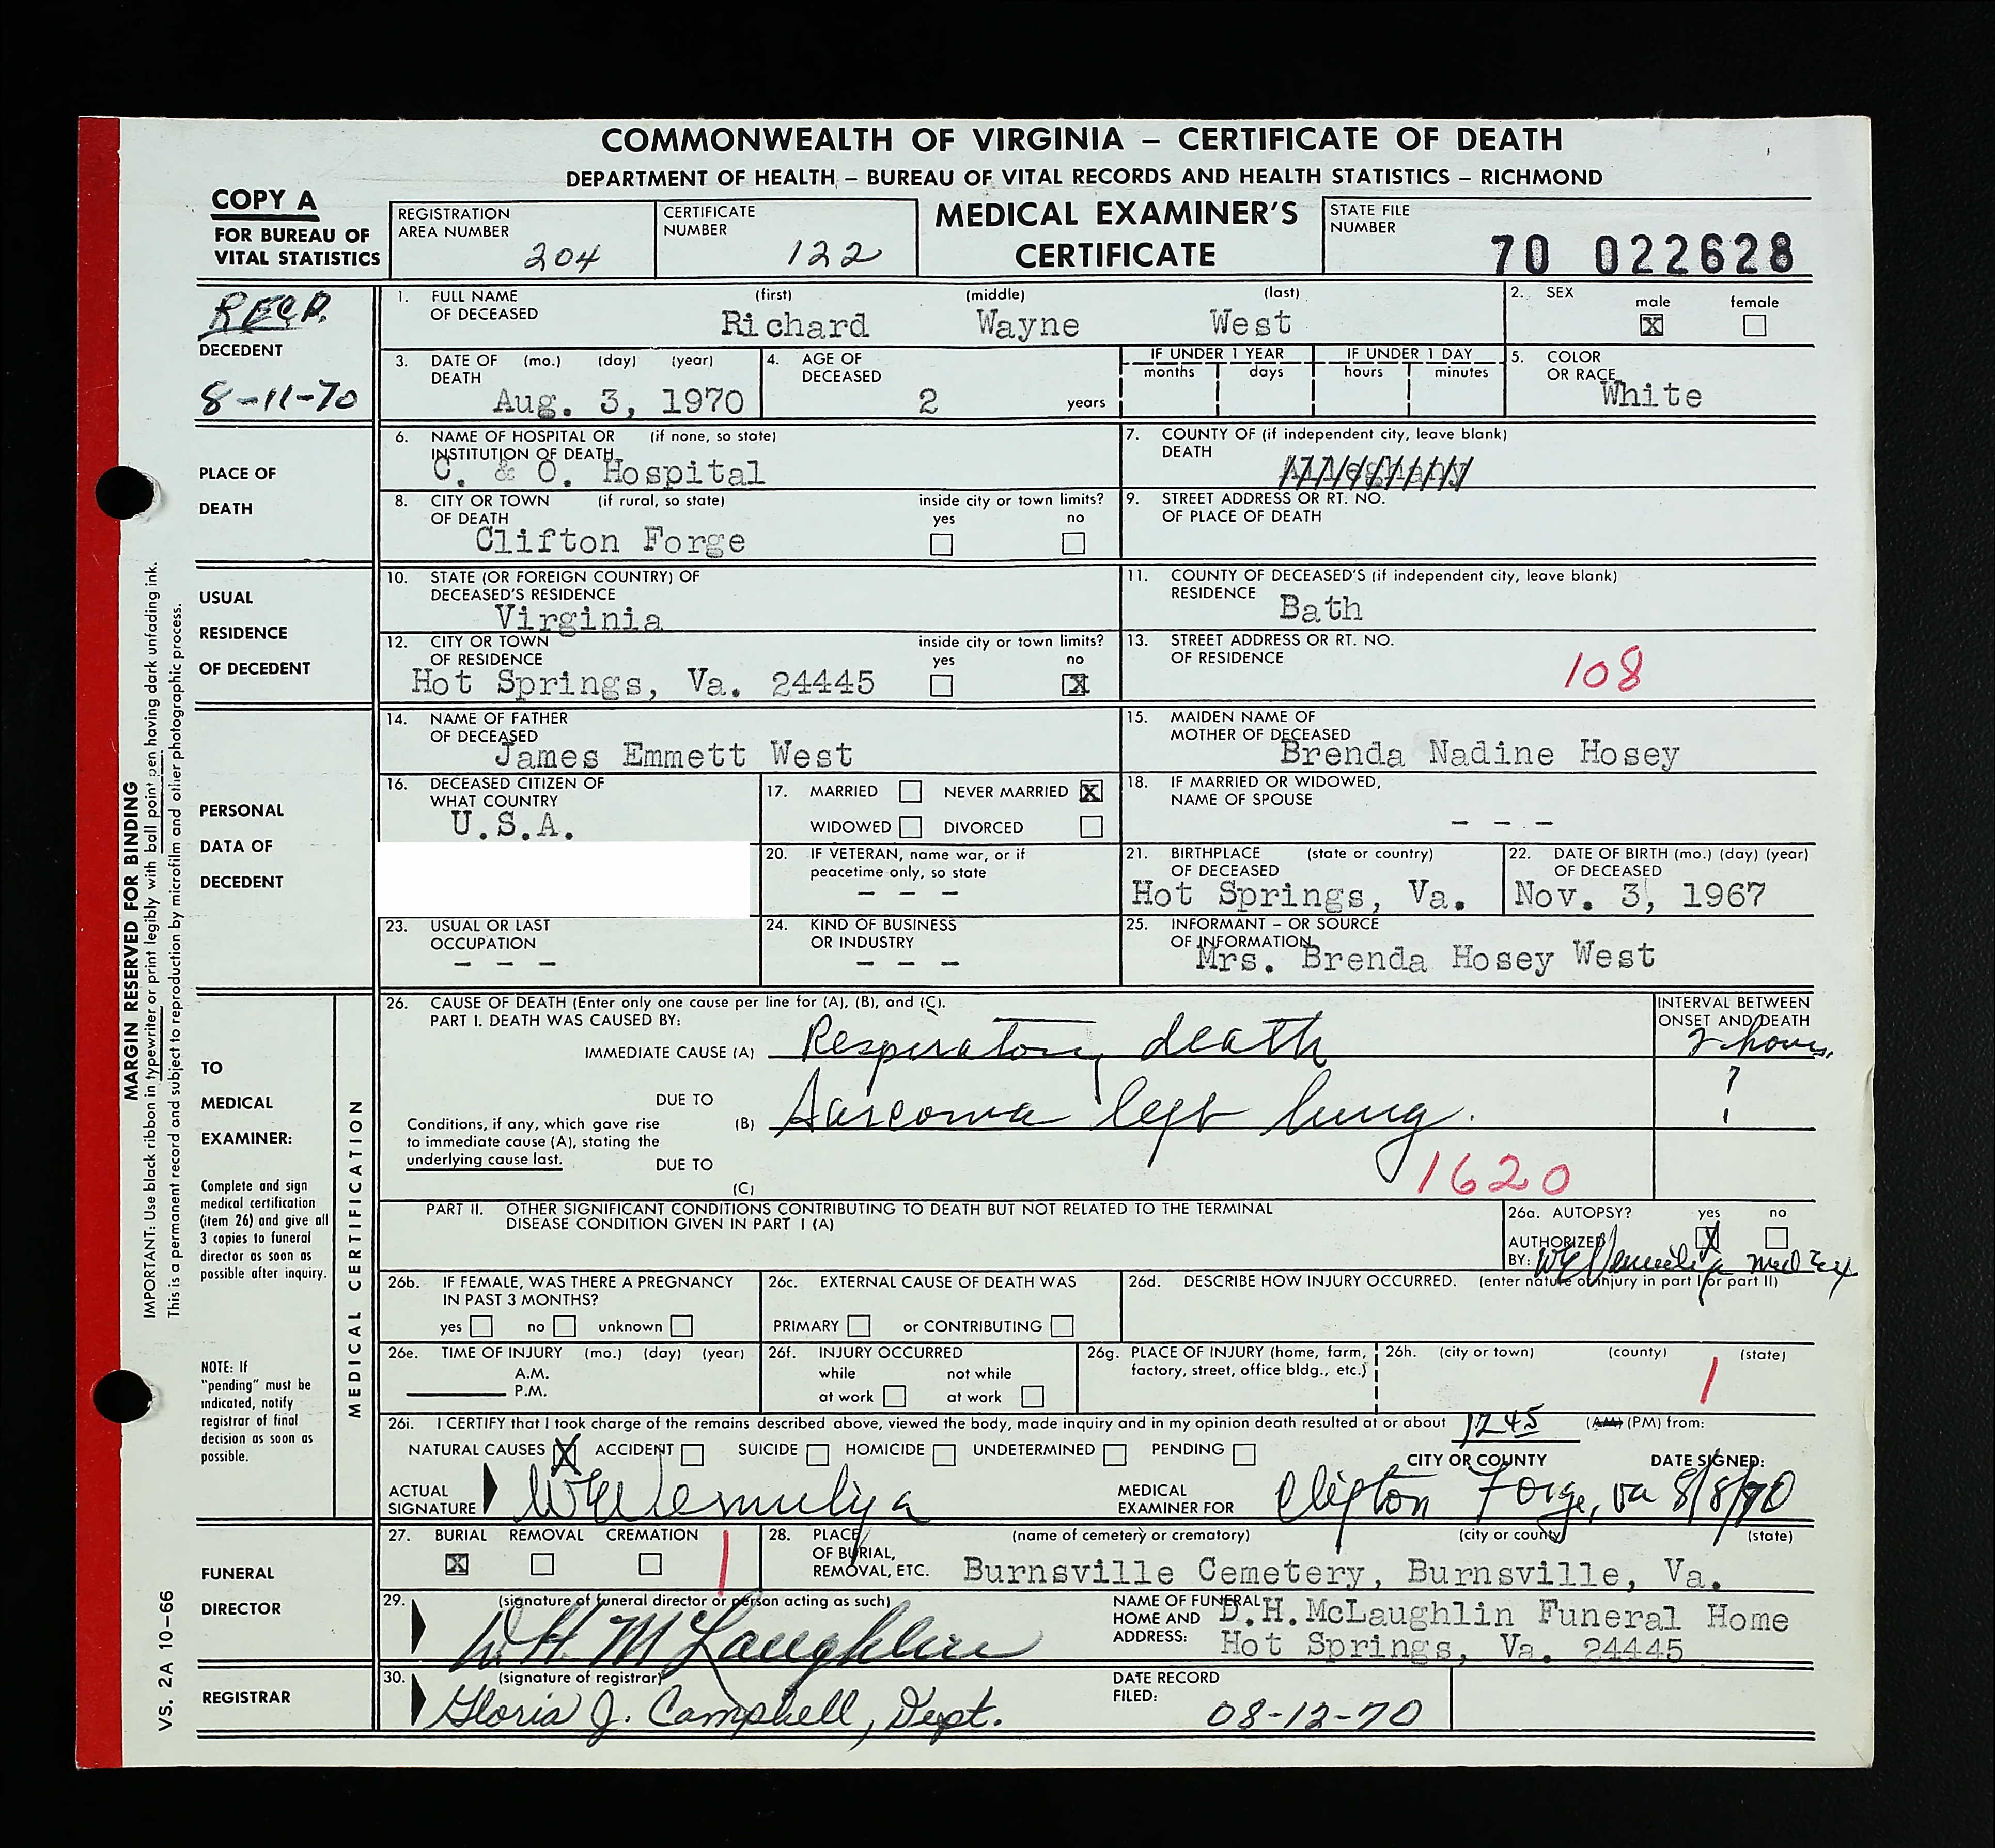 COMMONWEALTH OF VIRGINIA – CERTIFICATE OF DEATH
DEPARTMENT OF HEALTH – BUREAU OF VITAL RECORDS AND HEALTH STATISTICS – RICHMOND
COPY A
FOR BUREAU OF
VITAL STATISTICS
REGISTRATION
AREA NUMBER
204
CERTIFICATE
NUMBER
122
MEDICAL EXAMINER'S
CERTIFICATE
STATE FILE
NUMBER
70 022628
RECD.
DECEDENT
8-11-70
1. FULL NAME (first) (middle) (last)
OF DECEASED
Richard Wayne West
2. SEX
male female
X
3. DATE OF (mo.) (day) (year)
DEATH
Aug. 3, 1970
4. AGE OF
DECEASED
2 years
IF UNDER 1 YEAR IF UNDER 1 DAY
months days hours minutes
5. COLOR
OR RACE
White
PLACE OF
DEATH
6. NAME OF HOSPITAL OR (if none, so state)
INSTITUTION OF DEATH
C. & O. Hospital
7. COUNTY OF (if independent city, leave blank)
DEATH
Alleghany
8. CITY OR TOWN (if rural, so state) inside city or town limits?
OF DEATH yes no
Clifton Forge
9. STREET ADDRESS OR RT. NO.
OF PLACE OF DEATH
USUAL
RESIDENCE
OF DECEDENT
10. STATE (OR FOREIGN COUNTRY) OF
DECEASED'S RESIDENCE
Virginia
11. COUNTY OF DECEASED'S (if independent city, leave blank)
RESIDENCE
Bath
12. CITY OR TOWN inside city or town limits?
OF RESIDENCE yes no
Hot Springs, Va. 24445 X
13. STREET ADDRESS OR RT. NO.
OF RESIDENCE
108
PERSONAL
DATA OF
DECEDENT
14. NAME OF FATHER
OF DECEASED
James Emmett West
15. MAIDEN NAME OF
MOTHER OF DECEASED
Brenda Nadine Hosey
16. DECEASED CITIZEN OF
WHAT COUNTRY
U.S.A.
17. MARRIED NEVER MARRIED X
WIDOWED DIVORCED
18. IF MARRIED OR WIDOWED,
NAME OF SPOUSE
- - -
20. IF VETERAN, name war, or if
peacetime only, so state
- - -
21. BIRTHPLACE (state or country)
OF DECEASED
Hot Springs, Va.
22. DATE OF BIRTH (mo.) (day) (year)
OF DECEASED
Nov. 3, 1967
23. USUAL OR LAST
OCCUPATION
- - -
24. KIND OF BUSINESS
OR INDUSTRY
- - -
25. INFORMANT – OR SOURCE
OF INFORMATION
Mrs. Brenda Hosey West
TO
MEDICAL
EXAMINER:
Complete and sign
medical certification
(item 26) and give all
3 copies to funeral
director as soon as
possible after inquiry.
NOTE: If
"pending" must be
indicated, notify
registrar of final
decision as soon as
possible.
MEDICAL CERTIFICATION
26. CAUSE OF DEATH (Enter only one cause per line for (A), (B), and (C).
PART I. DEATH WAS CAUSED BY:
INTERVAL BETWEEN
ONSET AND DEATH
IMMEDIATE CAUSE (A) Respiratory death 2 hours.
DUE TO
Conditions, if any, which gave rise
to immediate cause (A), stating the
underlying cause last.
(B) Sarcoma left lung. ?
DUE TO
(C)
1620
PART II. OTHER SIGNIFICANT CONDITIONS CONTRIBUTING TO DEATH BUT NOT RELATED TO THE TERMINAL
DISEASE CONDITION GIVEN IN PART I (A)
26a. AUTOPSY? yes no
X
AUTHORIZED
BY: Med Ex
26b. IF FEMALE, WAS THERE A PREGNANCY
IN PAST 3 MONTHS?
yes no unknown
26c. EXTERNAL CAUSE OF DEATH WAS
PRIMARY or CONTRIBUTING
26d. DESCRIBE HOW INJURY OCCURRED. (enter nature of injury in part I or part II)
26e. TIME OF INJURY (mo.) (day) (year)
A.M.
P.M.
26f. INJURY OCCURRED
while not while
at work at work
26g. PLACE OF INJURY (home, farm,
factory, street, office bldg., etc.)
26h. (city or town) (county) (state)
1
26i. I CERTIFY that I took charge of the remains described above, viewed the body, made inquiry and in my opinion death resulted at or about 1245 (AM) (PM) from:
NATURAL CAUSES X ACCIDENT SUICIDE HOMICIDE UNDETERMINED PENDING
CITY OR COUNTY DATE SIGNED:
ACTUAL
SIGNATURE
MEDICAL
EXAMINER FOR
Clifton Forge, Va 8/8/70
FUNERAL
DIRECTOR
27. BURIAL REMOVAL CREMATION
X
1
28. PLACE (name of cemetery or crematory) (city or county) (state)
OF BURIAL,
REMOVAL, ETC.
Burnsville Cemetery, Burnsville, Va.
29. (signature of funeral director or person acting as such)
D.H. McLaughlin
NAME OF FUNERAL
HOME AND
ADDRESS:
D.H.McLaughlin Funeral Home
Hot Springs, Va. 24445
REGISTRAR
30. (signature of registrar)
Gloria J. Campbell, Dept.
DATE RECORD
FILED:
08-12-70
MARGIN RESERVED FOR BINDING
IMPORTANT: Use black ribbon in typewriter or print legibly with ball point pen having dark unfading ink.
This is a permanent record and subject to reproduction by microfilm and other photographic process.
VS. 2A 10–66